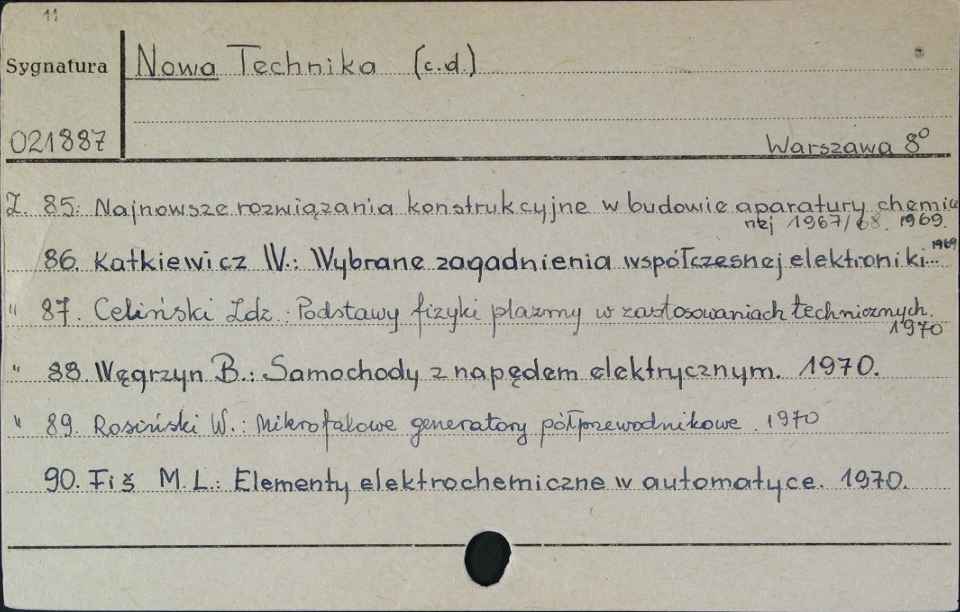 11
Sygnatura Nowa Technika (c.d.)
021887 Warszawa 8°
Z. 85: Najnowsze rozwiązania konstrukcyjne w budowie aparatury chemicz
nej 1967/68. 1969.
86. Katkiewicz W.: Wybrane zagadnienia współczesnej elektroniki... 1969
" 87. Celiński Zdz.: Podstawy fizyki plazmy w zastosowaniach technicznych.
1970
" 88. Węgrzyn B.: Samochody z napędem elektrycznym. 1970.
" 89. Rosiński W.: Mikrofalowe generatory półprzewodnikowe. 1970
90. Fiš M.L.: Elementy elektrochemiczne w automatyce. 1970.